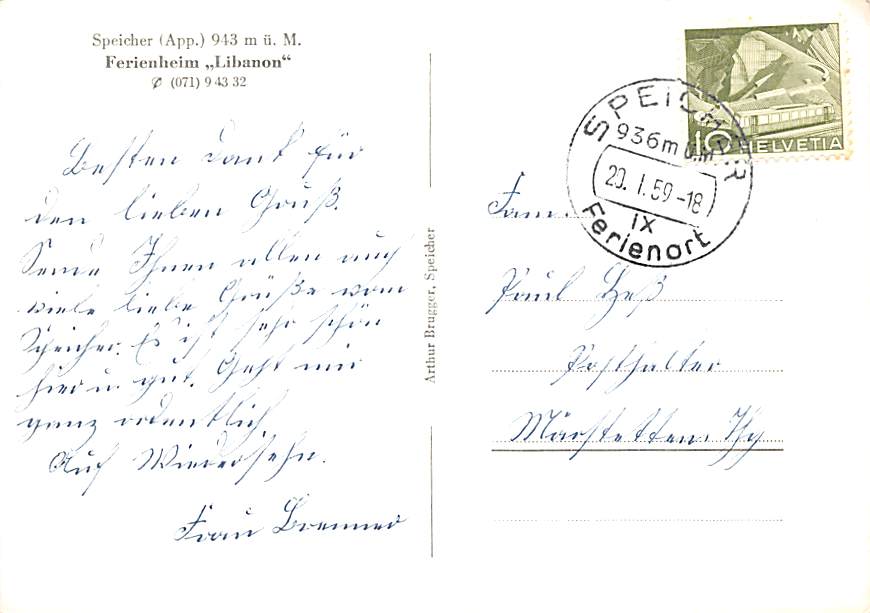 Speicher (App.) 943 m ü. M.
Ferienheim „Libanon“
✆ (071) 9 43 32
Besten Dank für
den lieben Gruß.
Sende Ihnen allen auch
viele liebe Grüße vom
Speicher. Es ist sehr schön
hier u. gut. Geht mir
ganz ordentlich
Auf Wiedersehn.
Frau Brenner
Arthur Brugger, Speicher
HELVETIA
10
SPEICHER
936 m ü.M.
20. I. 59-18
IX
Ferienort
Fam.
Paul Heß
Posthalter
Märstetten. Thg